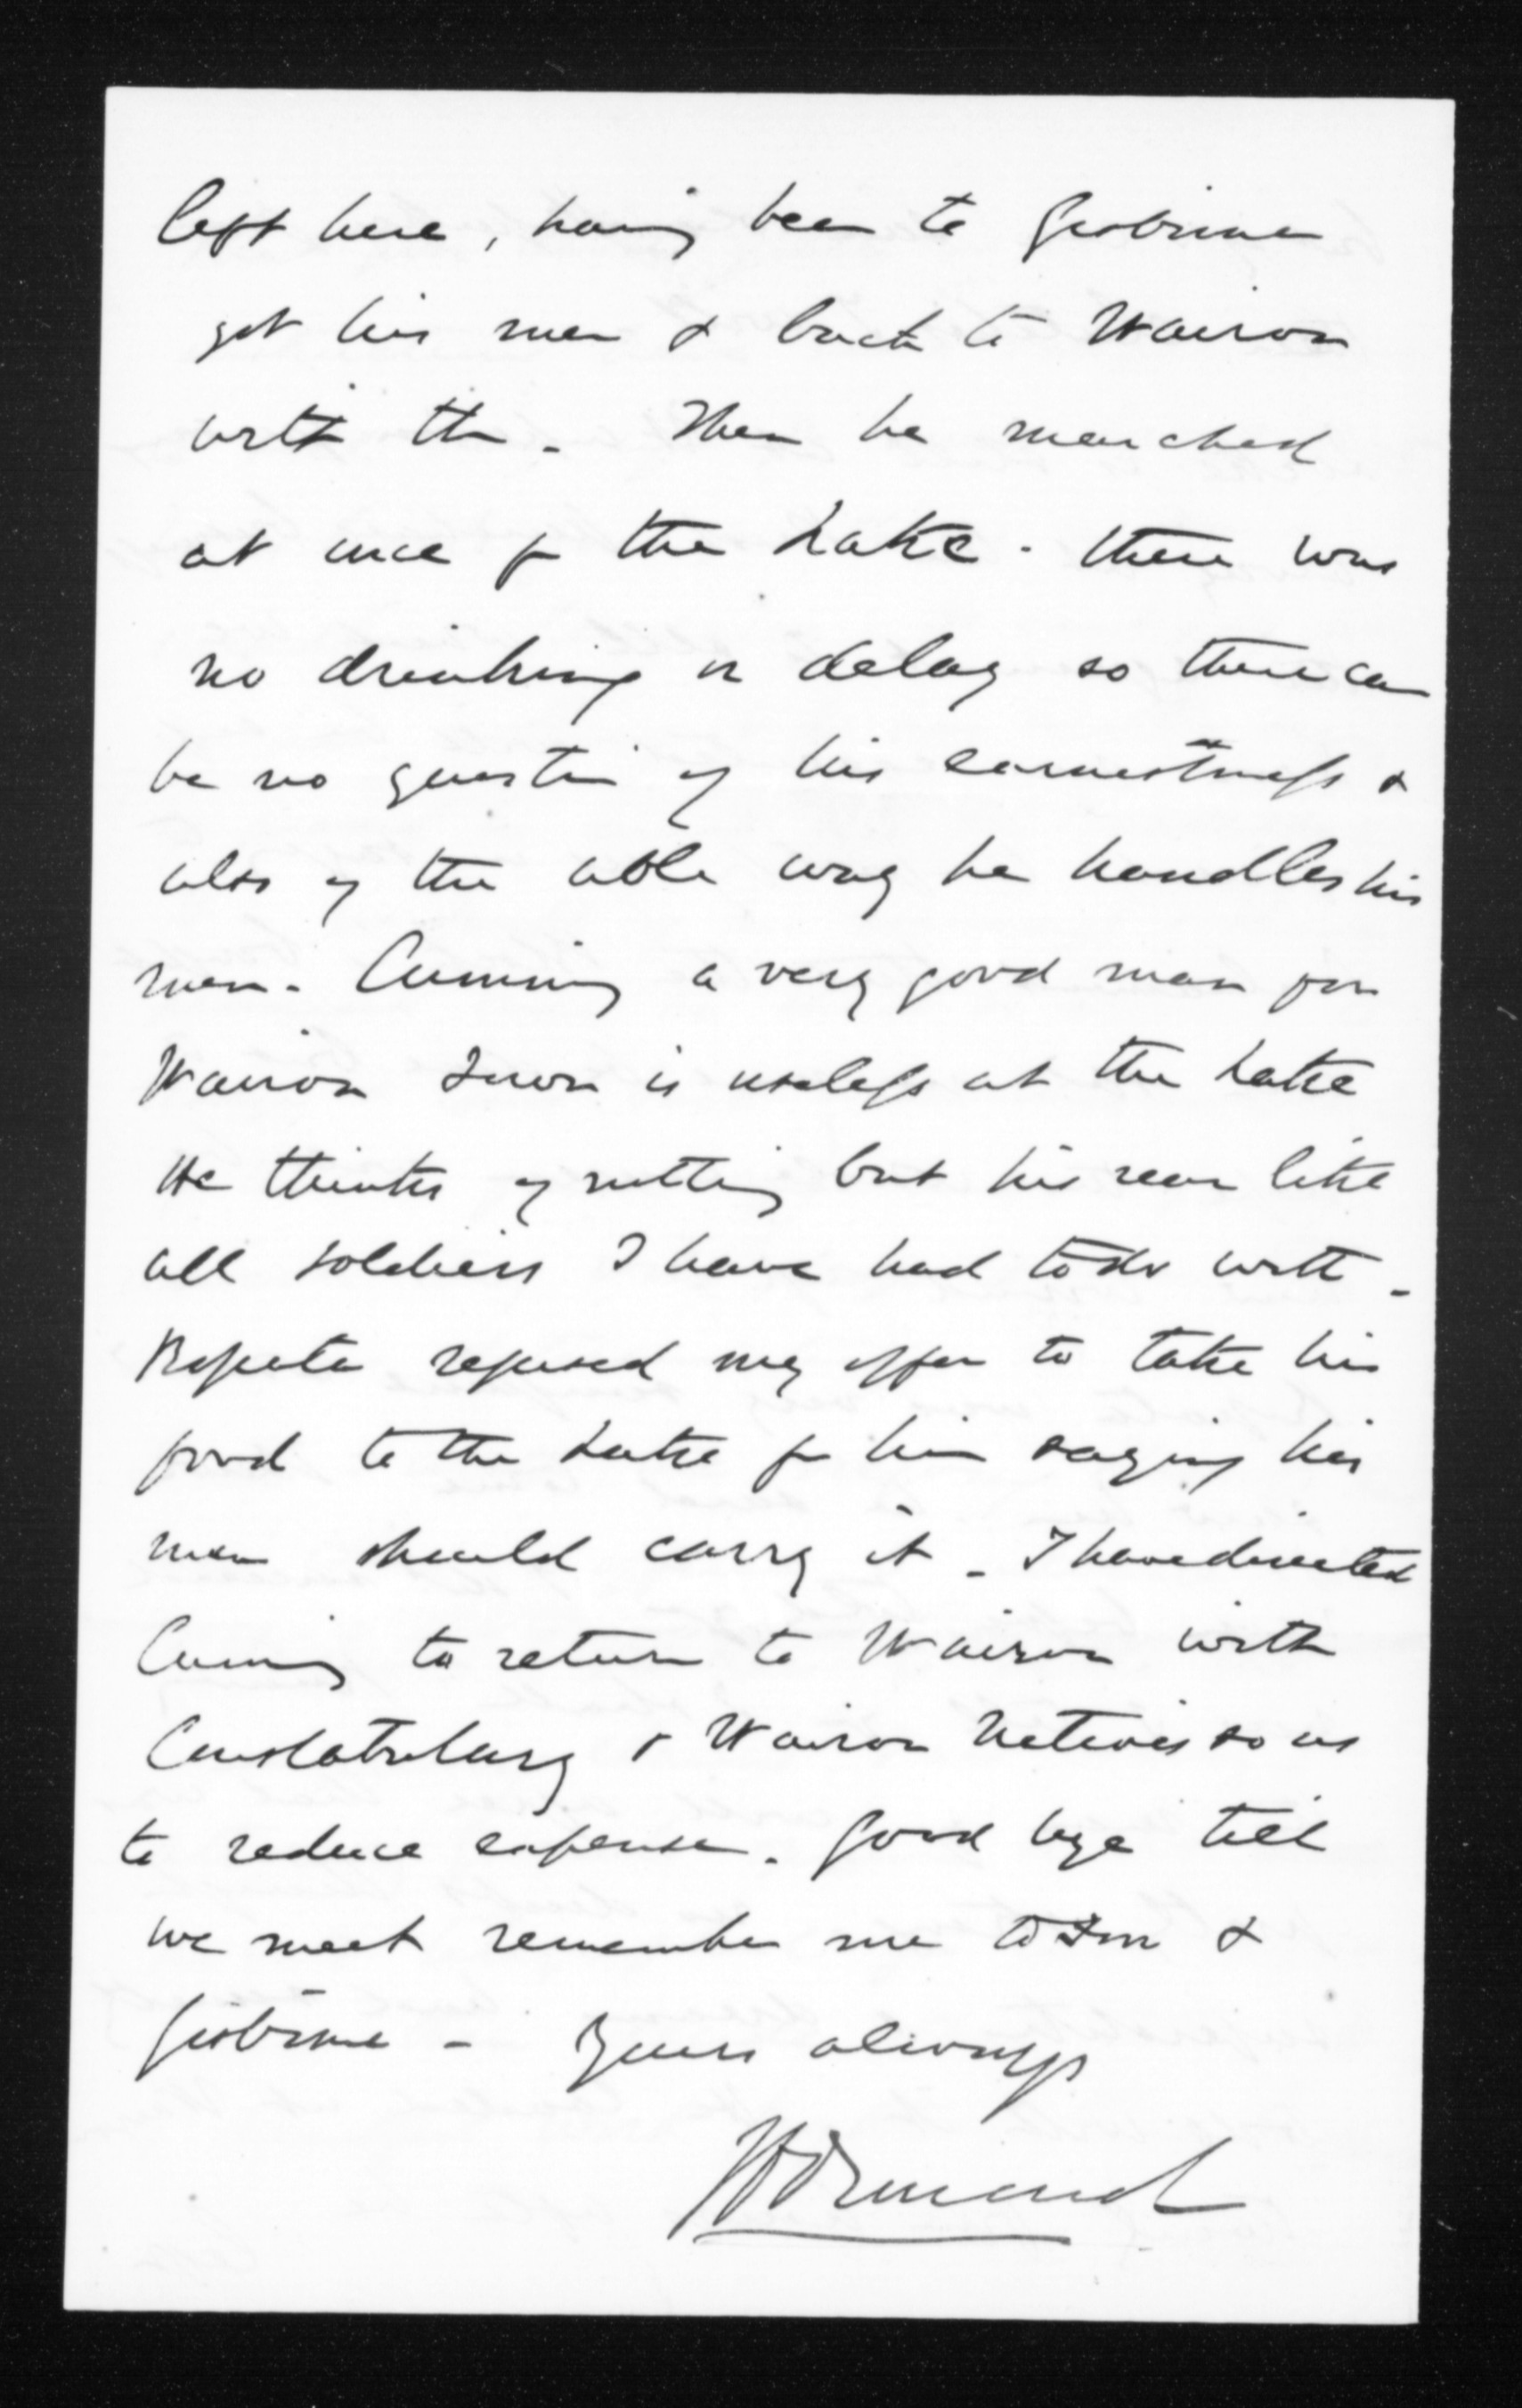 left here, having been to Gisborne
got his men & back to Wairoa
with th - Then he marched
at once for the Lake. there was
no drinking or delay so there can
be no question of his earnestness &
also of the able way he handles his
men - Cumming a very good man for
Wairoa Town is useless at the Lake
He thinks of nothing but his rear like
all soldiers I have had to do with -
Ropata refused my offer to take his
food to the Lake for him saying his
men should carry it - I have directed
Cuming to return to Wairoa with
Constabulary & Wairoa Natives so as
to reduce expense. Good bye till
we meet remember me to &
Gisborne - Yours always
JDOrmond